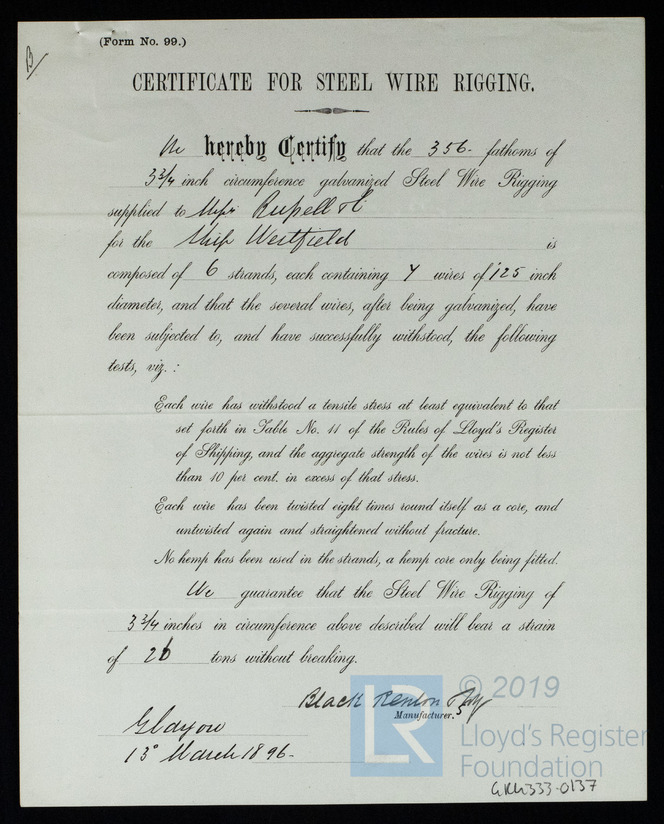 (Form No. 99.)
B
CERTIFICATE FOR STEEL WIRE RIGGING.
We hereby Certify that the 356 fathoms of
3 3/4 inch circumference galvanized Steel Wire Rigging
supplied to Messrs Russell & Co
for the Ship Westfield is
composed of 6 strands, each containing 7 wires of ·125 inch
diameter, and that the several wires, after being galvanized, have
been subjected to, and have successfully withstood, the following
tests, viz. :
Each wire has withstood a tensile stress at least equivalent to that
set forth in Table No. 11 of the Rules of Lloyd's Register
of Shipping, and the aggregate strength of the wires is not less
than 10 per cent. in excess of that stress.
Each wire has been twisted eight times round itself as a core, and
untwisted again and straightened without fracture.
No hemp has been used in the strands, a hemp core only being fitted.
We guarantee that the Steel Wire Rigging of
3 3/4 inches in circumference above described will bear a strain
of 26 tons without breaking.
Black Renton
Manufacturer.
Glasgow
13° March 1896
LR
© 2019
Lloyd's Register
Foundation
GRG333-0137